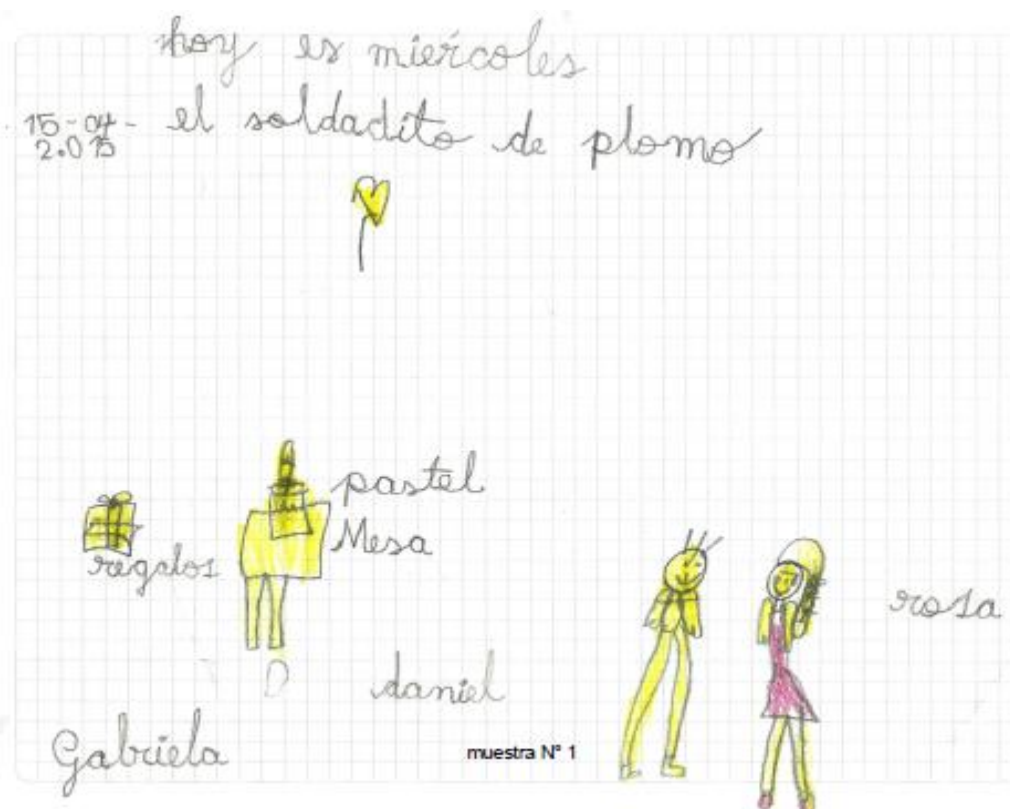 hoy es miércoles
15-04-
2.015
el soldadito de plomo
pastel
Mesa
regalos
rosa
D
daniel
Gabriela
muestra N° 1